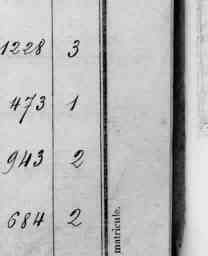 1228 3
473 1
943 2
684 2
matricule.